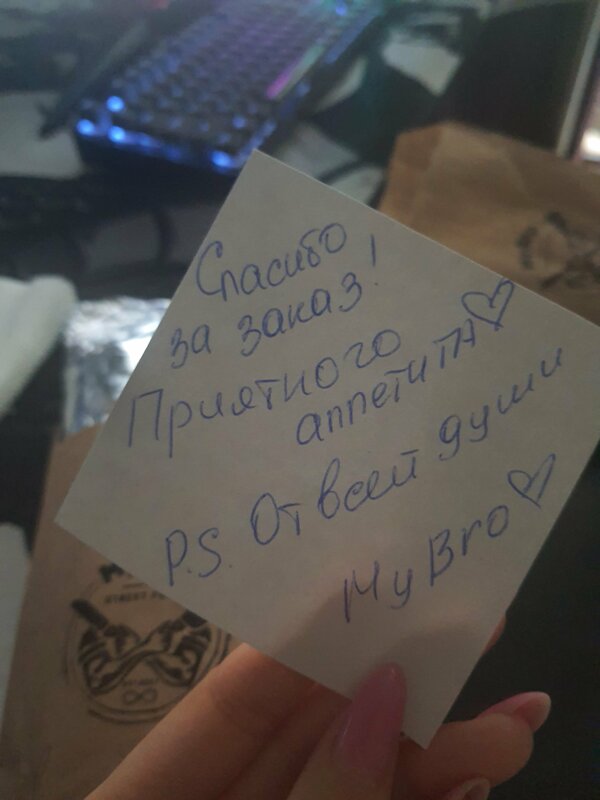 Спасибо
за заказ!
Приятного
аппетита♡
P.S. От всей души
My Bro♡
STREET